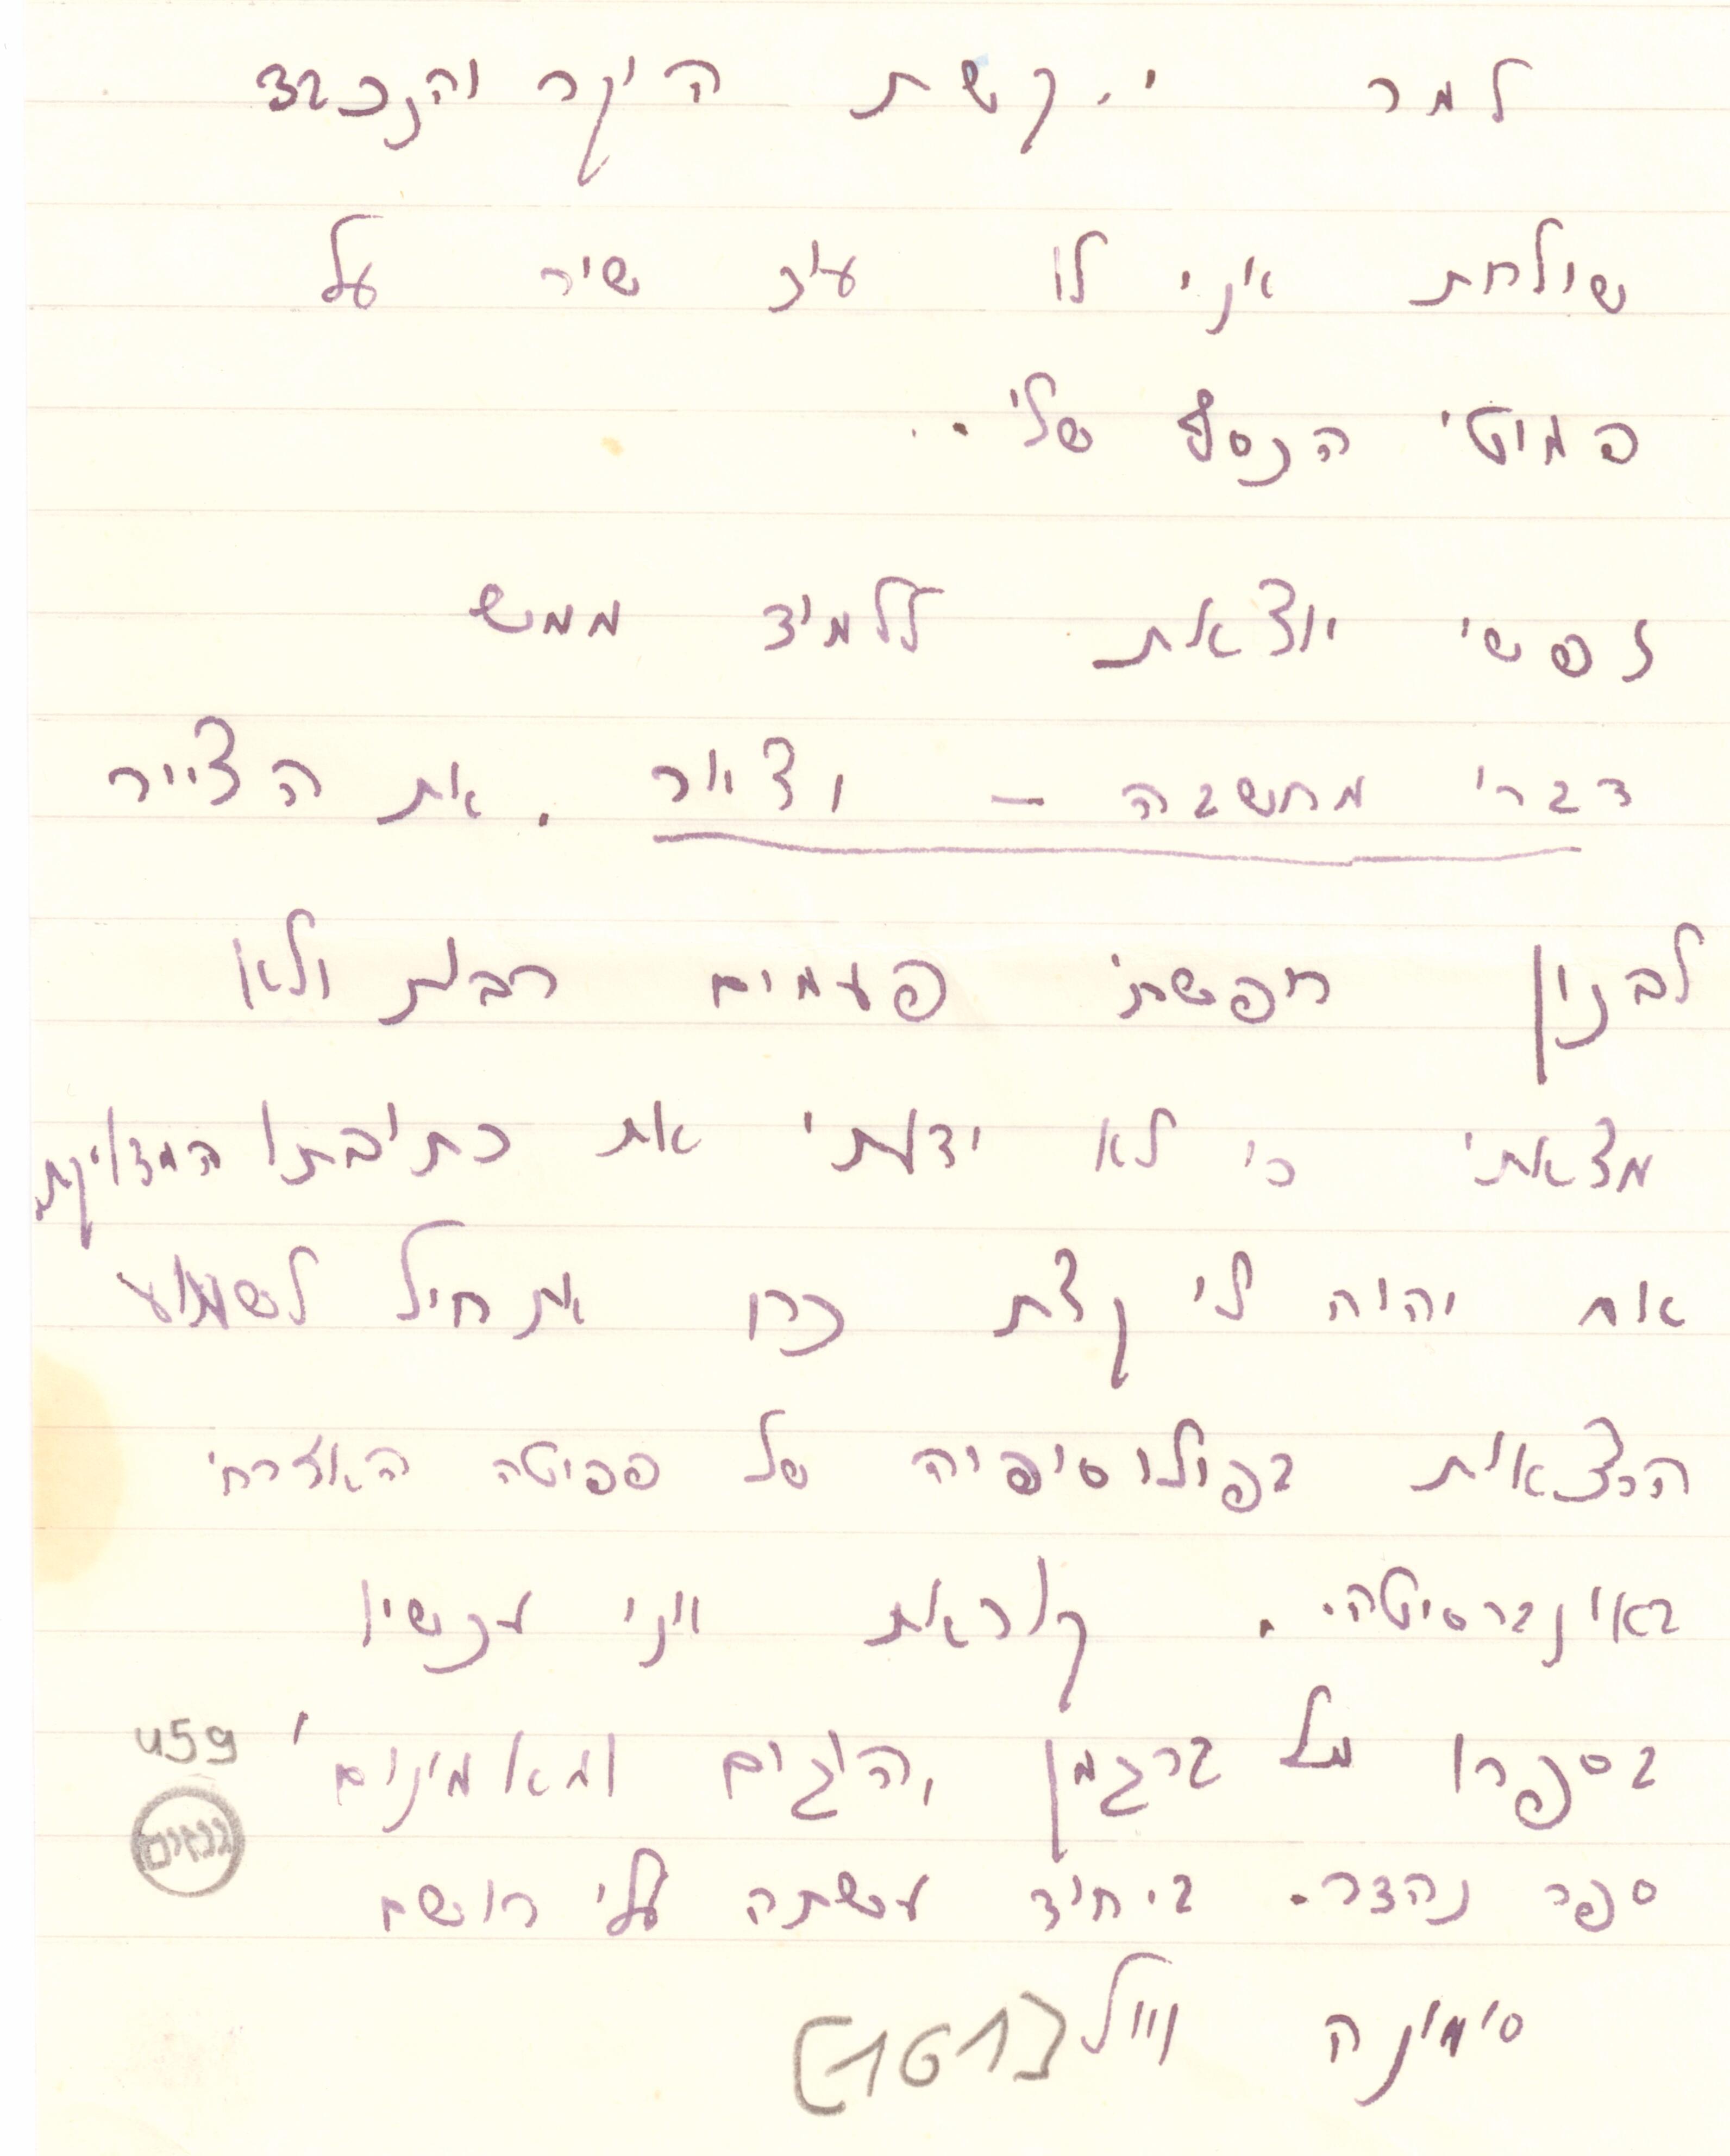 למר י. קשת היקר והנכבד
שולחת אני לו עוד שיר על
המוטי הנוסף שלי..
נפשי יוצאת ללמוד ממש
דברי מחשבה – וציור. את הצייר
לבנון חפשתי פעמים רבות ולא
מצאתי כי לא ידעתי את כתיבתו המדויקת
אם יהיה לי קצת כח אתחיל לשמוע
הרצאות בפילוסופיה של האזרחי
באוניברסיטה. קוראת אני עכשיו
בספרו של ברגמן "הוגים ומאמינים"
459
גנזים
ספר נהדר. ביחוד עשתה עלי רושם
סימונה וייל [161]